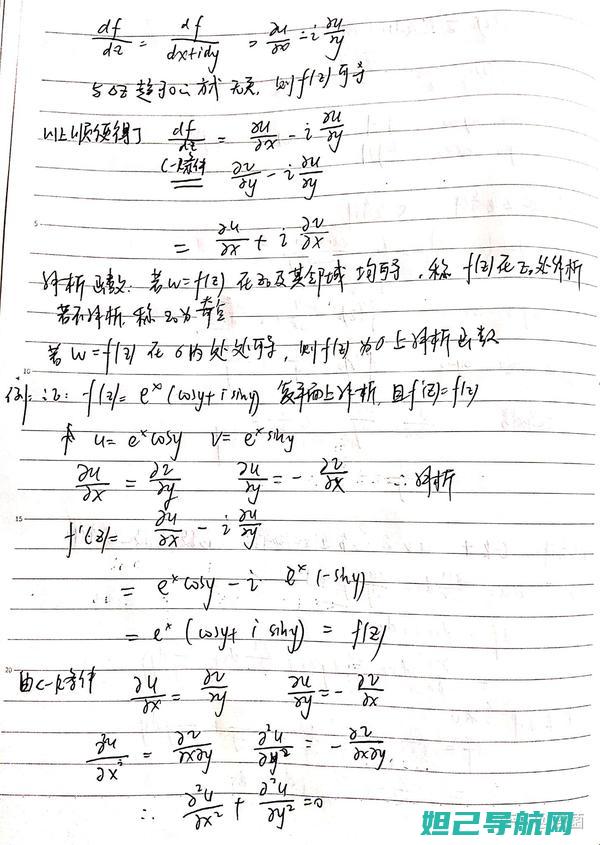 df/dz = df/(dx+idy) = ∂u/∂x - i ∂u/∂y
与Δz趋于0的方式无关, 则f(z)可导
以上顺便得了 df/dz = ∂u/∂x - i ∂u/∂y
C-R条件 ∂v/∂y - i ∂u/∂y
5
= ∂u/∂x + i ∂v/∂x
解析函数: 若w=f(z) 在z₀及其邻域均可导, 称 f(z)在z₀处解析
若不解析, 称z₀为奇点
若w=f(z) 在σ内处处可导, 则f(z)为σ上解析函数
10
例: 证: f(z)= eˣ(cosy+isiny) 复平面上解析, 且f'(z)=f(z)
u= eˣcosy v= eˣsiny
∂u/∂x = ∂v/∂y ∂u/∂y = - ∂v/∂x ∴解析
15
f'(z)= ∂u/∂x - i ∂u/∂y
= eˣcosy - i eˣ(-siny)
= eˣ(cosy+ i siny) = f(z)
20
由C-R条件 ∂u/∂x = ∂v/∂y ∂u/∂y = - ∂v/∂x
∂²u/∂x² = ∂v/∂x∂y ∂²u/∂y² = - ∂v/∂x∂y
∴ ∂²u/∂x² + ∂²u/∂y² =0
妲己导航网